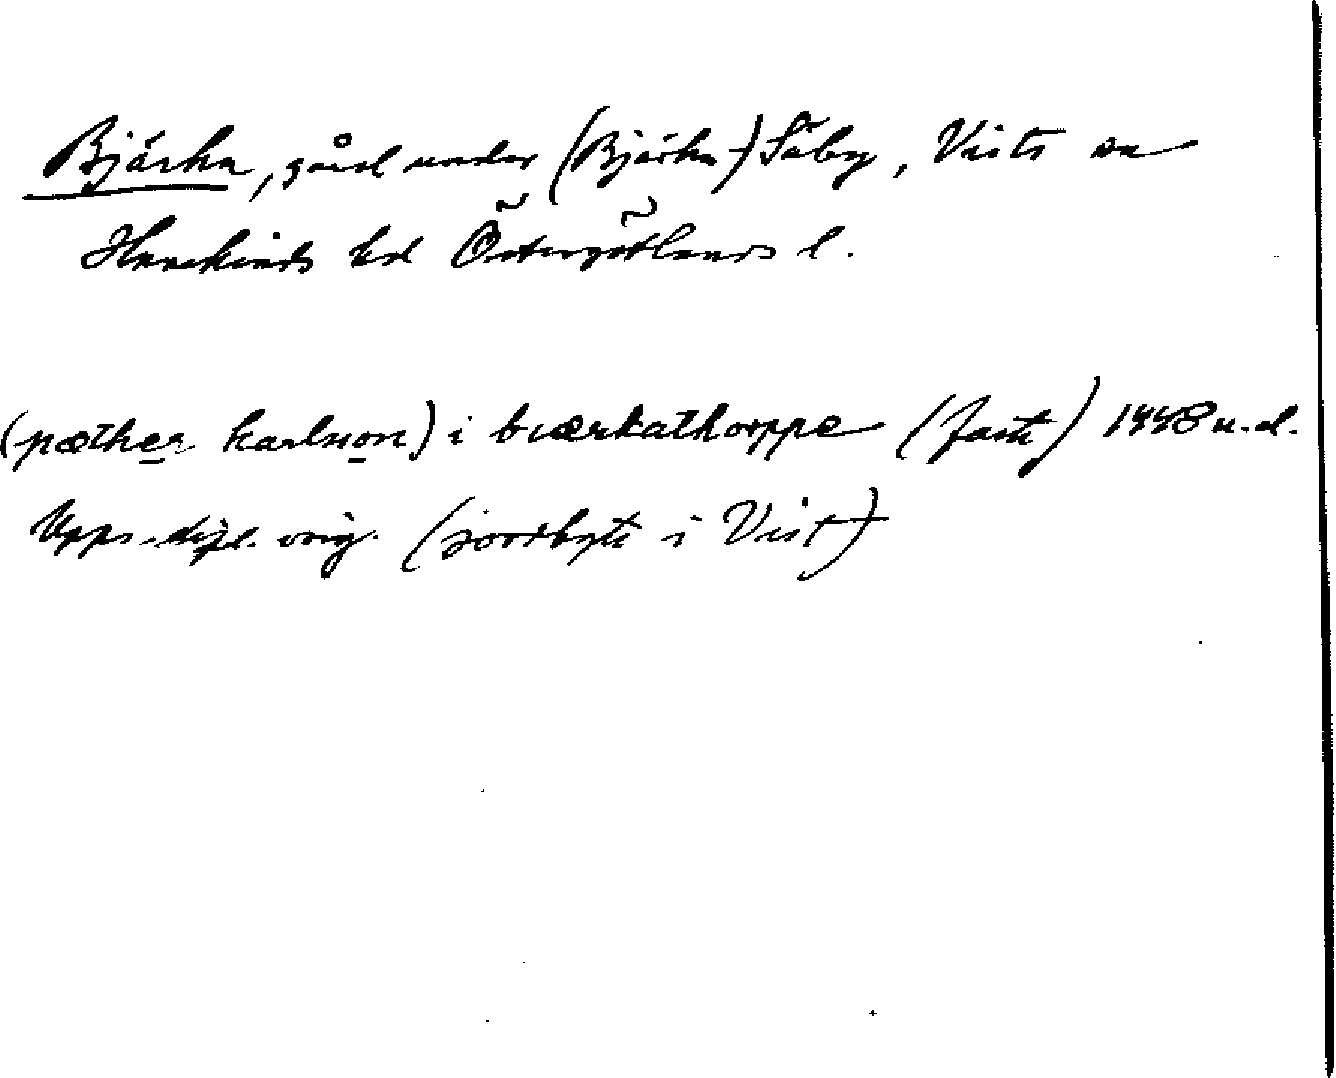 Bjärka, gård under (Bjärka-)Säby, Vists sn
Hanekinds hd Östergötlands l.
(pæther karlson) i biærkathorppe (faste) 1448 u.d.
Upps. dipl. orig. (jordbyte i Vist)